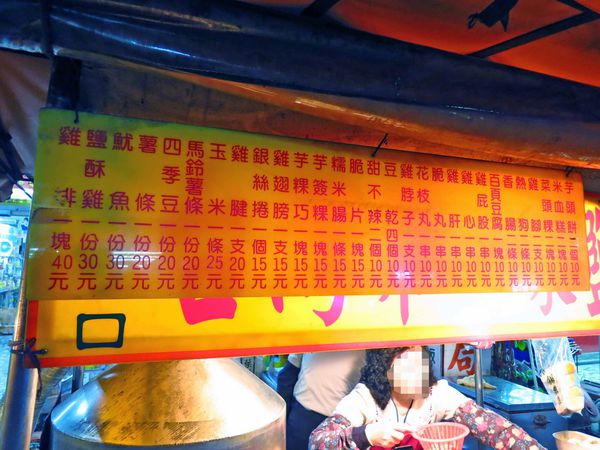 雞排 塊40元
鹽酥雞 份30元
魷魚 份30元
薯條 份20元
四季豆 份20元
馬鈴薯條 份20元
玉米 條25元
雞腱 支20元
銀絲捲 個15元
雞翅膀 支15元
芋粿巧 塊15元
芋簽粿 塊15元
糯米腸 條15元
脆片 塊15元
甜不辣 個10元
豆乾 二個10元
雞脖子 四支10元
花枝丸 串10元
脆丸 串10元
雞肝 串10元
雞心 串10元
雞屁股 串10元
百頁豆腐 塊10元
香腸 條10元
熱狗 條10元
雞腳 支10元
菜頭粿 塊10元
米血糕 塊10元
芋頭餅 個10元